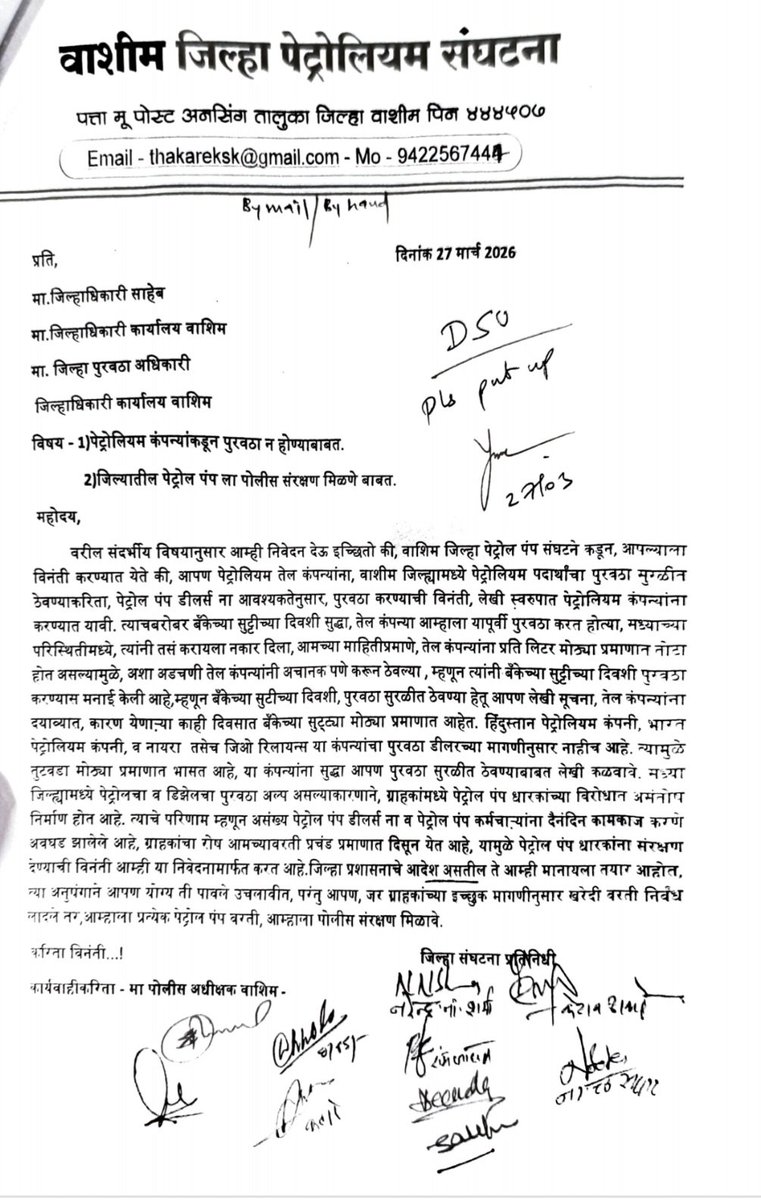 वाशीम जिल्हा पेट्रोलियम संघटना
पत्ता मू पोस्ट अनसिंग तालुका जिल्हा वाशीम पिन ४४४५०७
Email - thakareksk@gmail.com - Mo - 9422567444
By mail/By hand
प्रति,
दिनांक 27 मार्च 2026
मा.जिल्हाधिकारी साहेब
मा.जिल्हाधिकारी कार्यालय वाशिम
मा. जिल्हा पुरवठा अधिकारी
जिल्हाधिकारी कार्यालय वाशिम
DSO
Pls put up
27/03
विषय - 1)पेट्रोलियम कंपन्यांकडून पुरवठा न होण्याबाबत.
2)जिल्यातील पेट्रोल पंप ला पोलीस संरक्षण मिळणे बाबत.
महोदय,
वरील संदर्भीय विषयानुसार आम्ही निवेदन देऊ इच्छितो की, वाशिम जिल्हा पेट्रोल पंप संघटने कडून, आपल्याला
विनंती करण्यात येते की, आपण पेट्रोलियम तेल कंपन्यांना, वाशीम जिल्ह्यामध्ये पेट्रोलियम पदार्थांचा पुरवठा सुरळीत
ठेवण्याकरिता, पेट्रोल पंप डीलर्स ना आवश्यकतेनुसार, पुरवठा करण्याची विनंती, लेखी स्वरुपात पेट्रोलियम कंपन्यांना
करण्यात यावी. त्याचबरोबर बँकेच्या सुट्टीच्या दिवशी सुद्धा, तेल कंपन्या आम्हाला यापूर्वी पुरवठा करत होत्या, सध्याच्या
परिस्थितीमध्ये, त्यांनी तसं करायला नकार दिला, आमच्या माहितीप्रमाणे, तेल कंपन्यांना प्रति लिटर मोठ्या प्रमाणात तोटा
होत असल्यामुळे, अशा अडचणी तेल कंपन्यांनी अचानक पणे करून ठेवल्या , म्हणून त्यांनी बँकेच्या सुट्टीच्या दिवशी पुरवठा
करण्यास मनाई केली आहे,म्हणून बँकेच्या सुटीच्या दिवशी, पुरवठा सुरळीत ठेवण्या हेतू आपण लेखी सूचना, तेल कंपन्यांना
दयाव्यात, कारण येणाऱ्या काही दिवसात बँकेच्या सुट्ट्या मोठ्या प्रमाणात आहेत. हिंदुस्तान पेट्रोलियम कंपनी, भारत
पेट्रोलियम कंपनी, व नायरा तसेच जिओ रिलायन्स या कंपन्यांचा पुरवठा डीलरच्या मागणीनुसार नाहीच आहे. त्यामुळे
तुटवडा मोठ्या प्रमाणात भासत आहे, या कंपन्यांना सुद्धा आपण पुरवठा सुरळीत ठेवण्याबाबत लेखी कळवावे. सध्या
जिल्ह्यामध्ये पेट्रोलचा व डिझेलचा पुरवठा अल्प असल्याकारणाने, ग्राहकांमध्ये पेट्रोल पंप धारकांच्या विरोधात असंतोष
निर्माण होत आहे. त्याचे परिणाम म्हणून असंख्य पेट्रोल पंप डीलर्स ना व पेट्रोल पंप कर्मचाऱ्यांना दैनंदिन कामकाज करणे
अवघड झालेले आहे, ग्राहकांचा रोष आमच्यावरती प्रचंड प्रमाणात दिसून येत आहे, यामुळे पेट्रोल पंप धारकांना संरक्षण
देण्याची विनंती आम्ही या निवेदनामार्फत करत आहे.जिल्हा प्रशासनाचे आदेश असतील ते आम्ही मानायला तयार आहोत.
त्या अनुषंगाने आपण योग्य ती पावले उचलावीत, परंतु आपण, जर ग्राहकांच्या इच्छुक मागणीनुसार खरेदी वरती निर्बंध
लादले तर,आम्हाला प्रत्येक पेट्रोल पंप वरती, आम्हाला पोलीस संरक्षण मिळावे.
करिता विनंती...!
जिल्हा संघटना प्रतिनिधी
कार्यवाहीकरिता - मा पोलीस अधीक्षक वाशिम -
नरेन्द्र ना. शर्मा